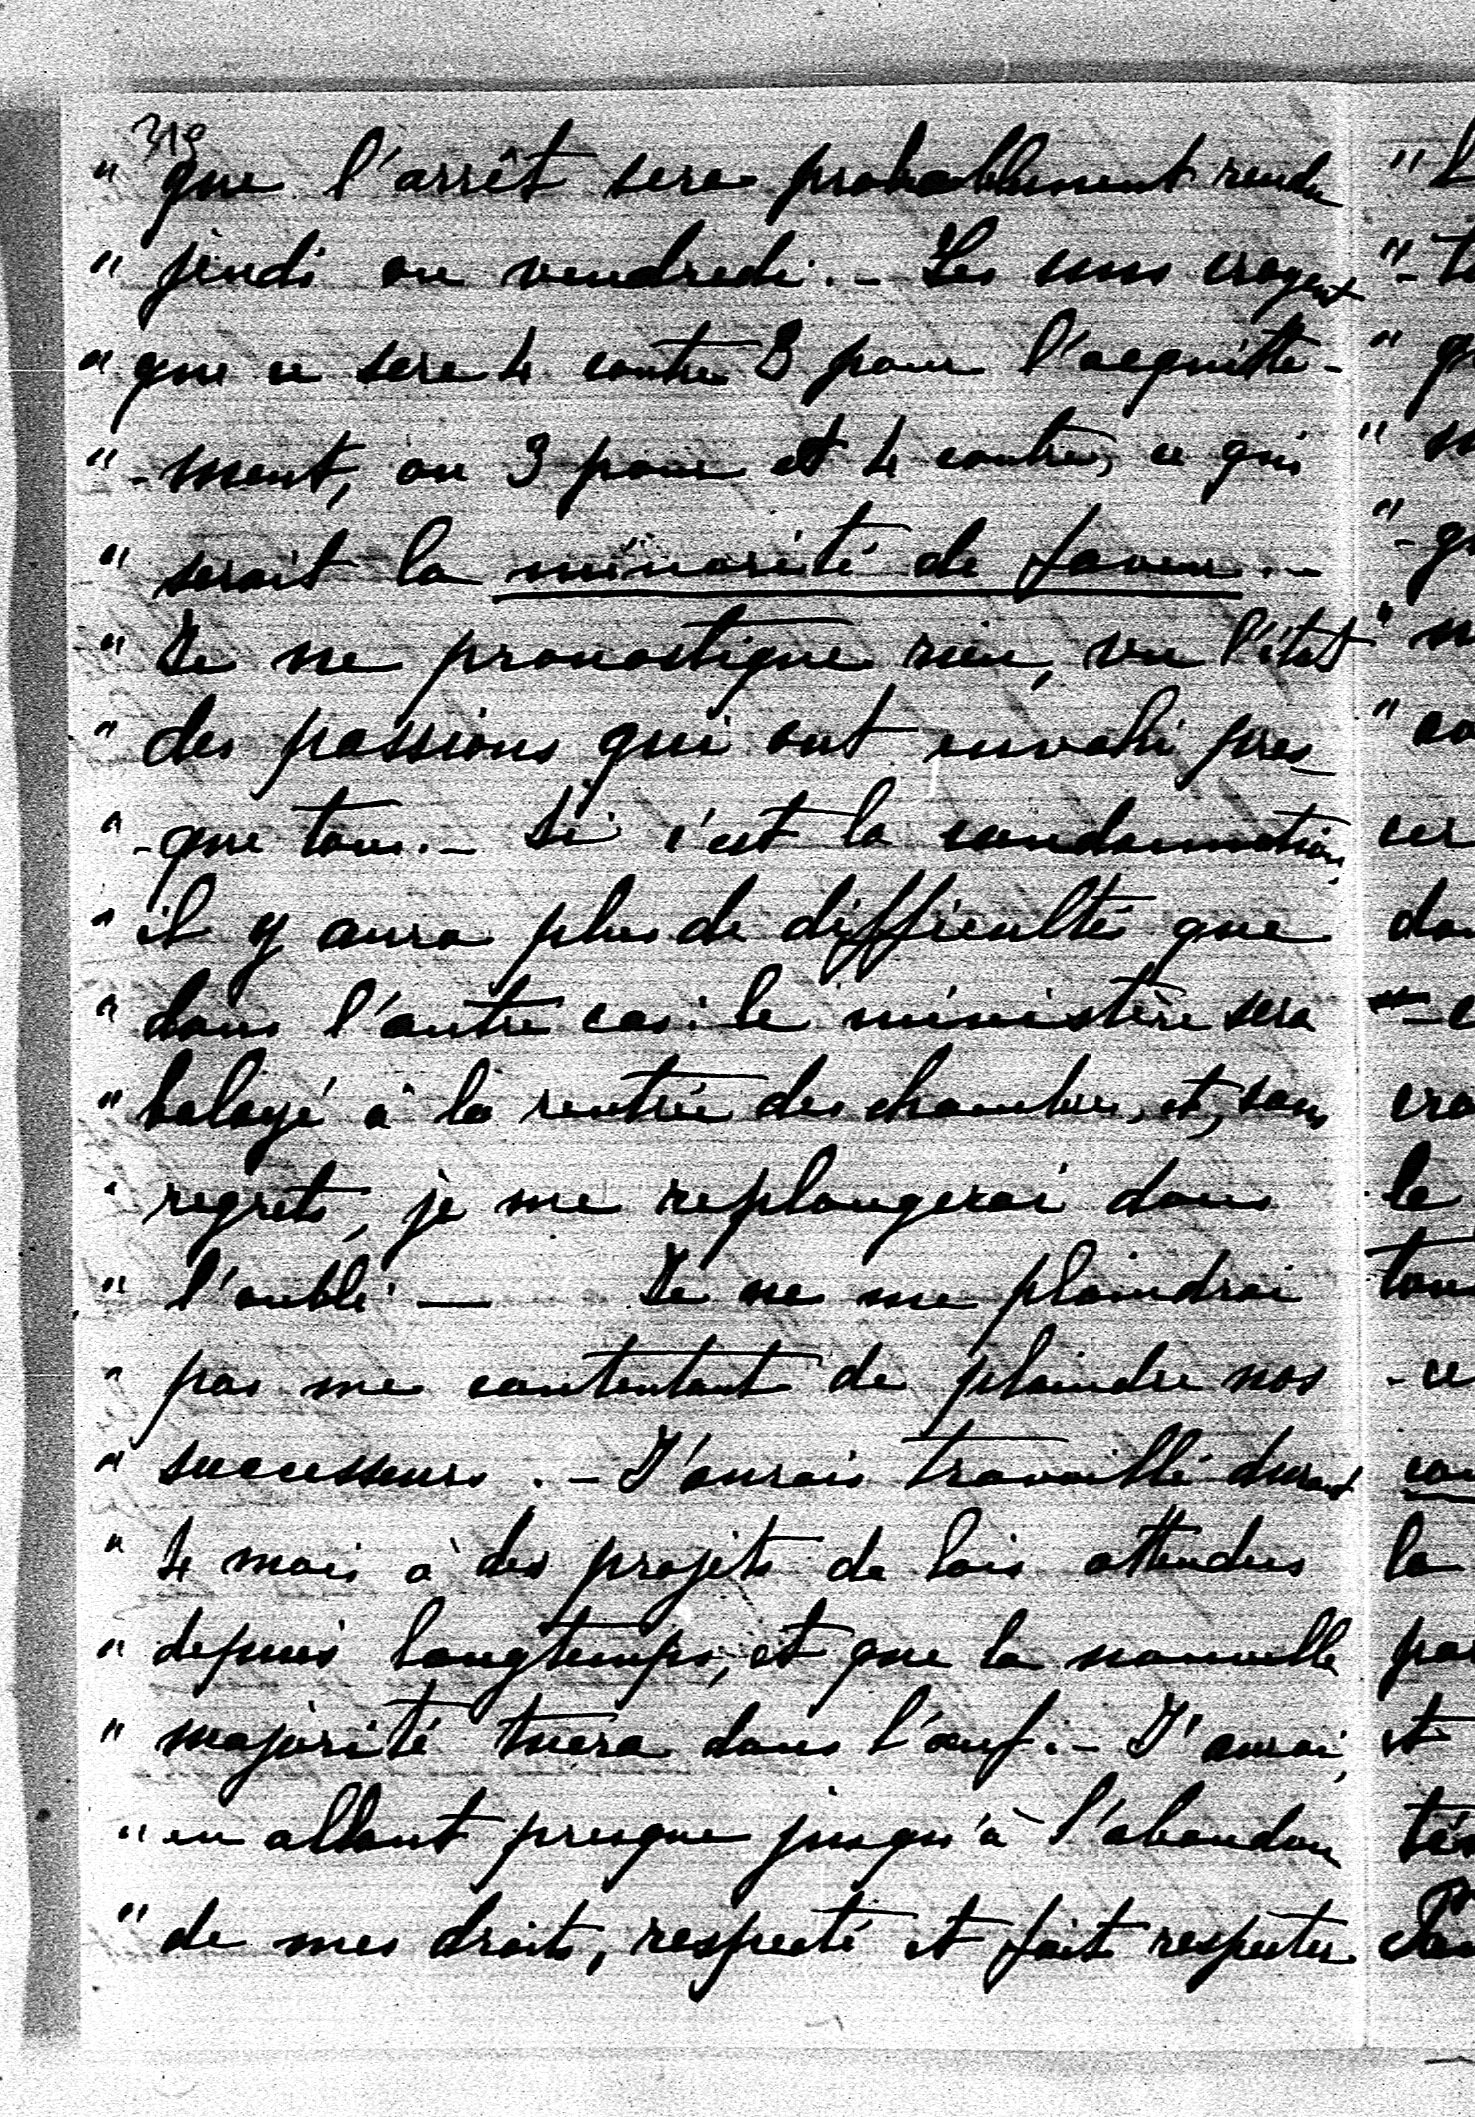 319
" que l'arrêt sera probablement rendu
" jeudi ou vendredi. - Les uns croyent
" que ce sera 4 contre 3 pour l'acquitte-
" -ment, ou 3 pour et 4 contre, ce qui
" serait la minorité de faveur. -
" Je ne pronostique rien, vu l'état
" des passions qui ont envahi pres
" -que tous. - Si c'est la condamnation,
" il y aura plus de difficultés que
" dans l'autre cas: le ministère sera
" balayé à la rentrée des chambres, et, sans
" regrets, je me replongerai dans
" l'oubli — Je ne me plaindrai
" pas me contentant de plaindre nos
" successeurs. - J'aurais travaillé durant
" 4 mois à des projets de lois attendus
" depuis longtemps, et que la nouvelle
" majorité tuera dans l'œuf. - J'aurai,
" en allant presque jusqu'à l'abandon
" de mes droits, respecté et fait respecter